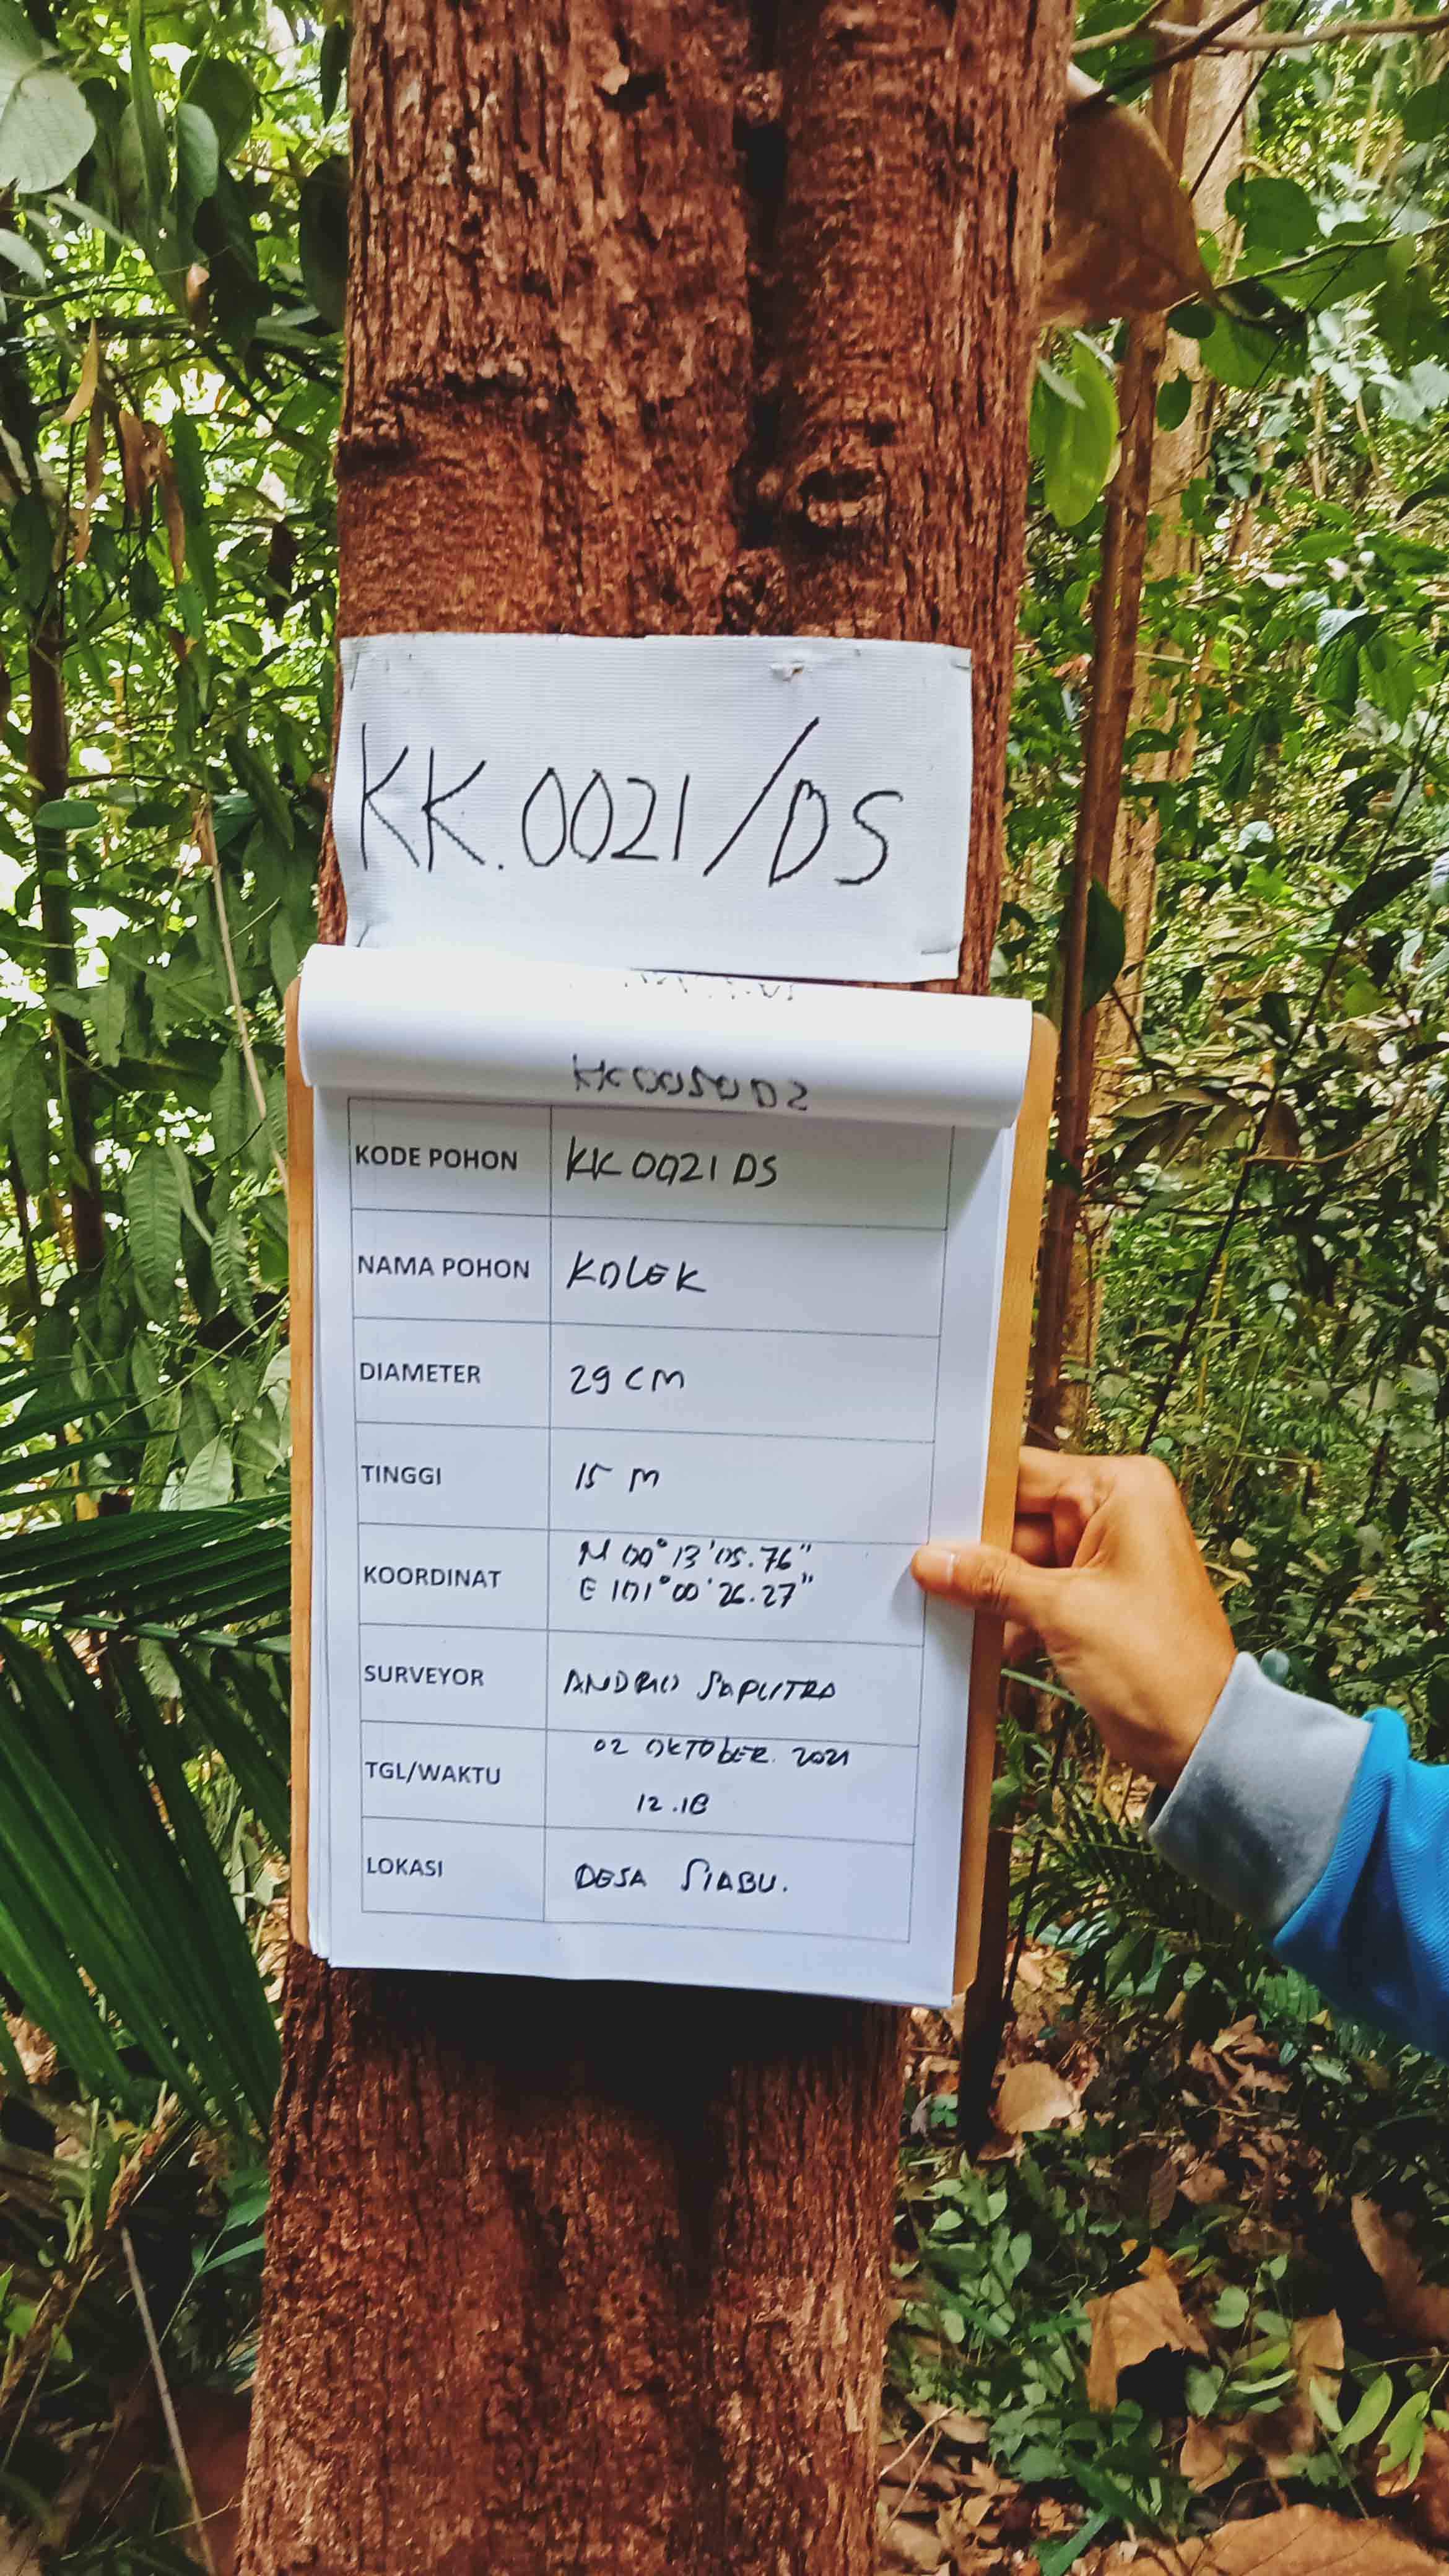 KK.0021/DS
KODE POHON KK 0021 DS
NAMA POHON KOLEK
DIAMETER 29 CM
TINGGI 15 M
KOORDINAT N 00° 13' 05.76"
E 101° 00' 26.27"
SURVEYOR ANDRIO SAPUTRA
TGL/WAKTU 02 OKTOBER. 2021
12.18
LOKASI DESA SIABU.